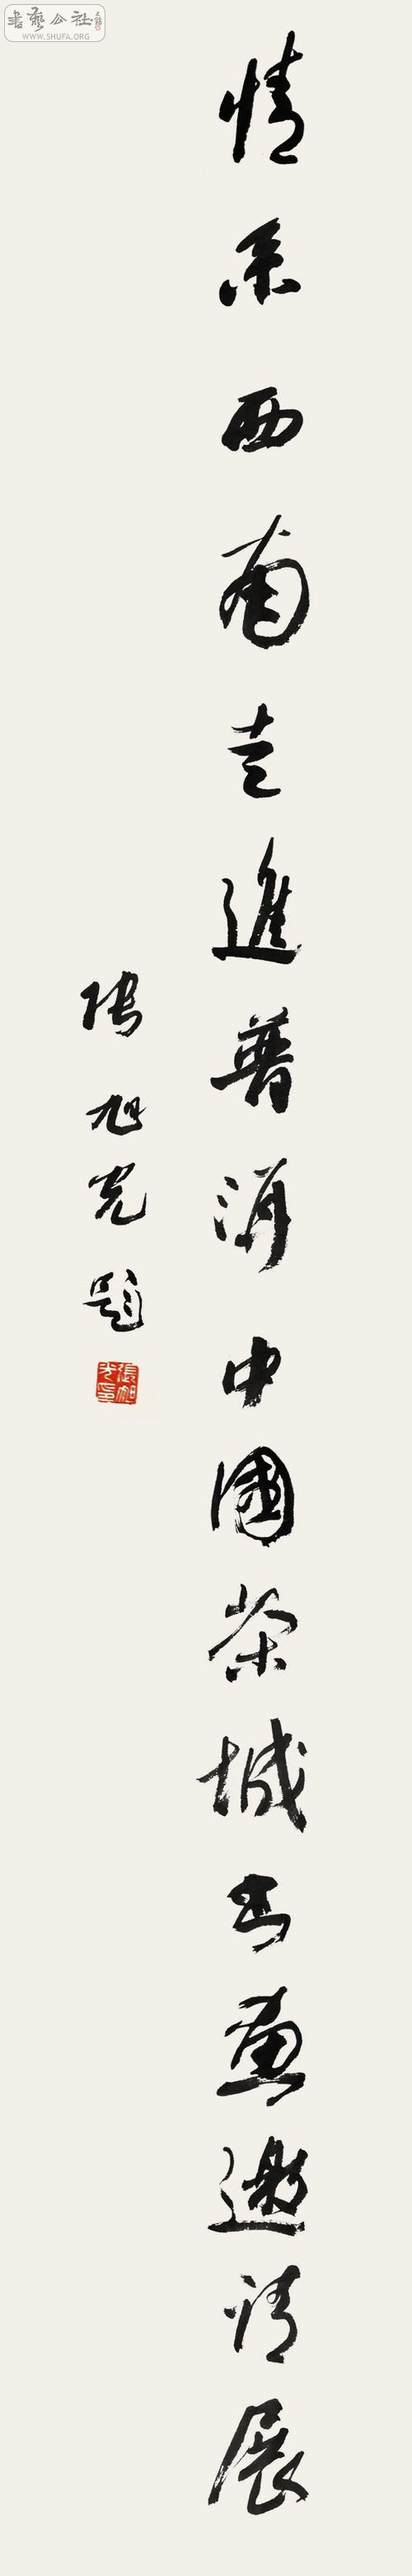 書藝公社
WWW.SHUFA.ORG
情系西南走進普洱中國茶城书畫邀请展
张旭光题
張旭光印